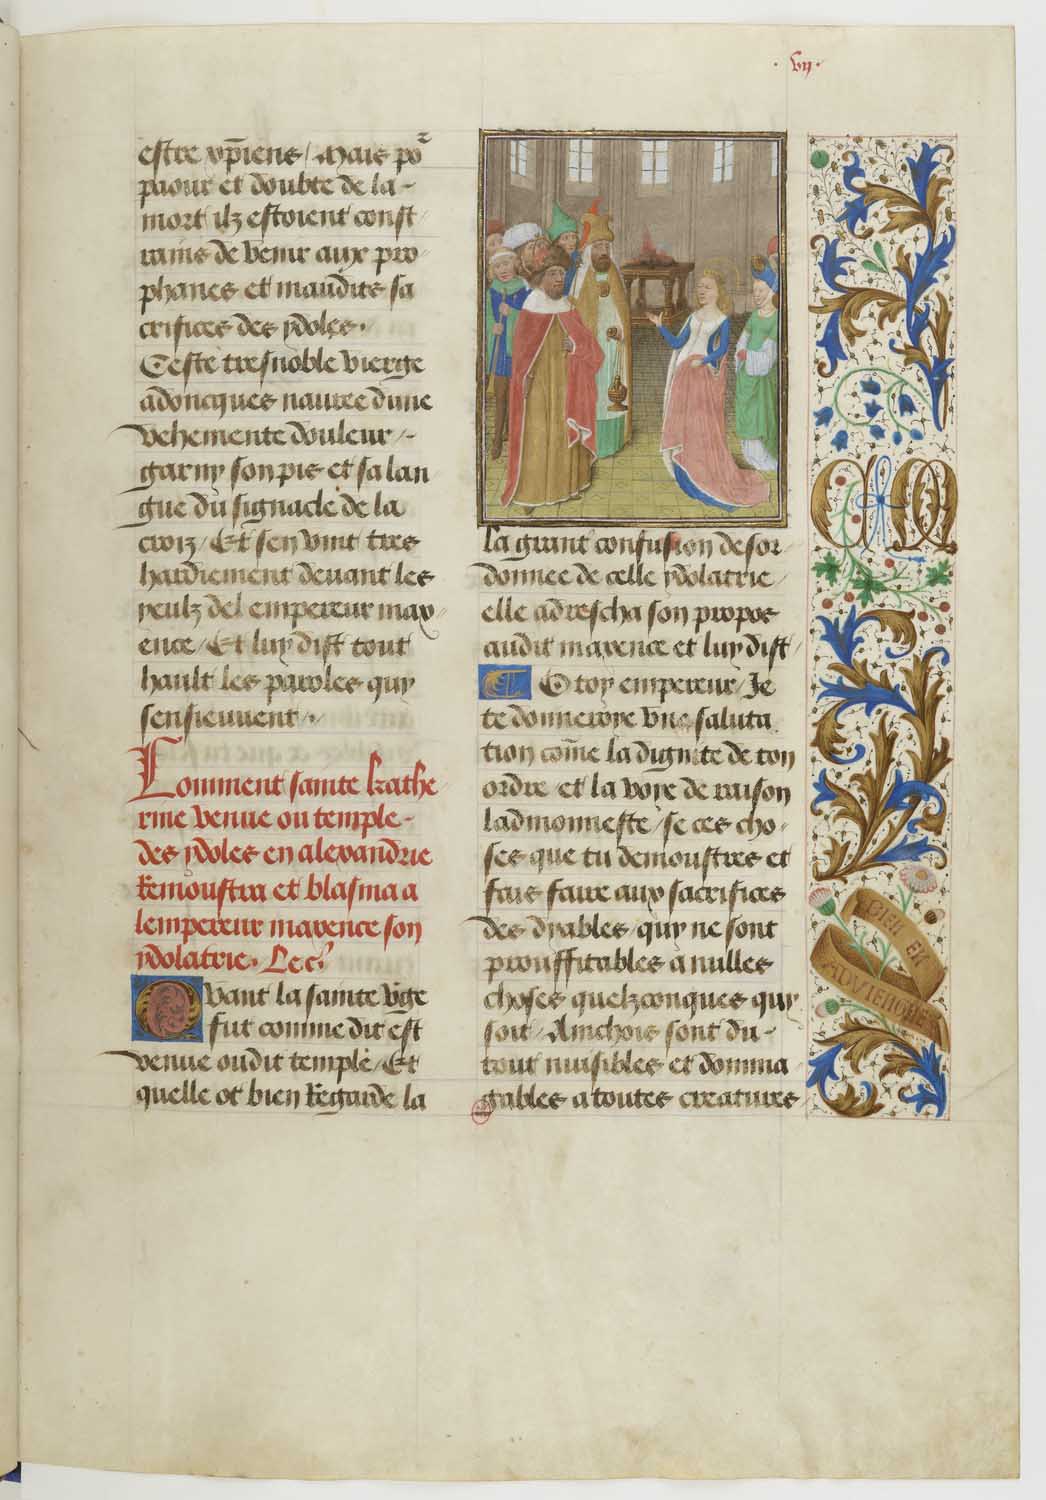 .vij.
estre xp̄iens / Mais poᷣ
paour et doubte de la-
mort ilz estoient const
rains de venir aux pro
phanes et maudits sa
crifices des ydoles .
Ceste tresnoble vierge
adoncques navree dune
vehemente douleur /-
garny son pis et sa lan
gue du signacle de la
croiz / Et sen vint tres
hardiement devant les
yeulz del empereur max
ence / Et luy dist tout
hault les paroles quy
sensieuvent / .
Comment sainte kathe
rine venue ou temple-
des ydoles en alexandrie
Remoustra et blasma a
lempereur maxence son
ydolatrie. Lec̃.
Quant la sainte v̾ge
fut comme dit est
venue oudit temple / Et
quelle ot bien Regarde la
la grant confusion desor
donnee de celle ydolatrie /
elle adrescha son propos
audit maxence et luy dist /
O toy empereur / Je
te donneroye une saluta
tion cōme la dignite de ton
ordre et la voye de raison
ladmonneste / se ces cho-
ses que tu demoustres et
fais faire aux sacrifices
des dyables / quy ne sont
prouffitables a nulles
choses quelzconques quy
soit / Ainchois sont du-
tout nuisibles et domma
gables a toutes creatures
BIEN EN
ADVIENGNE